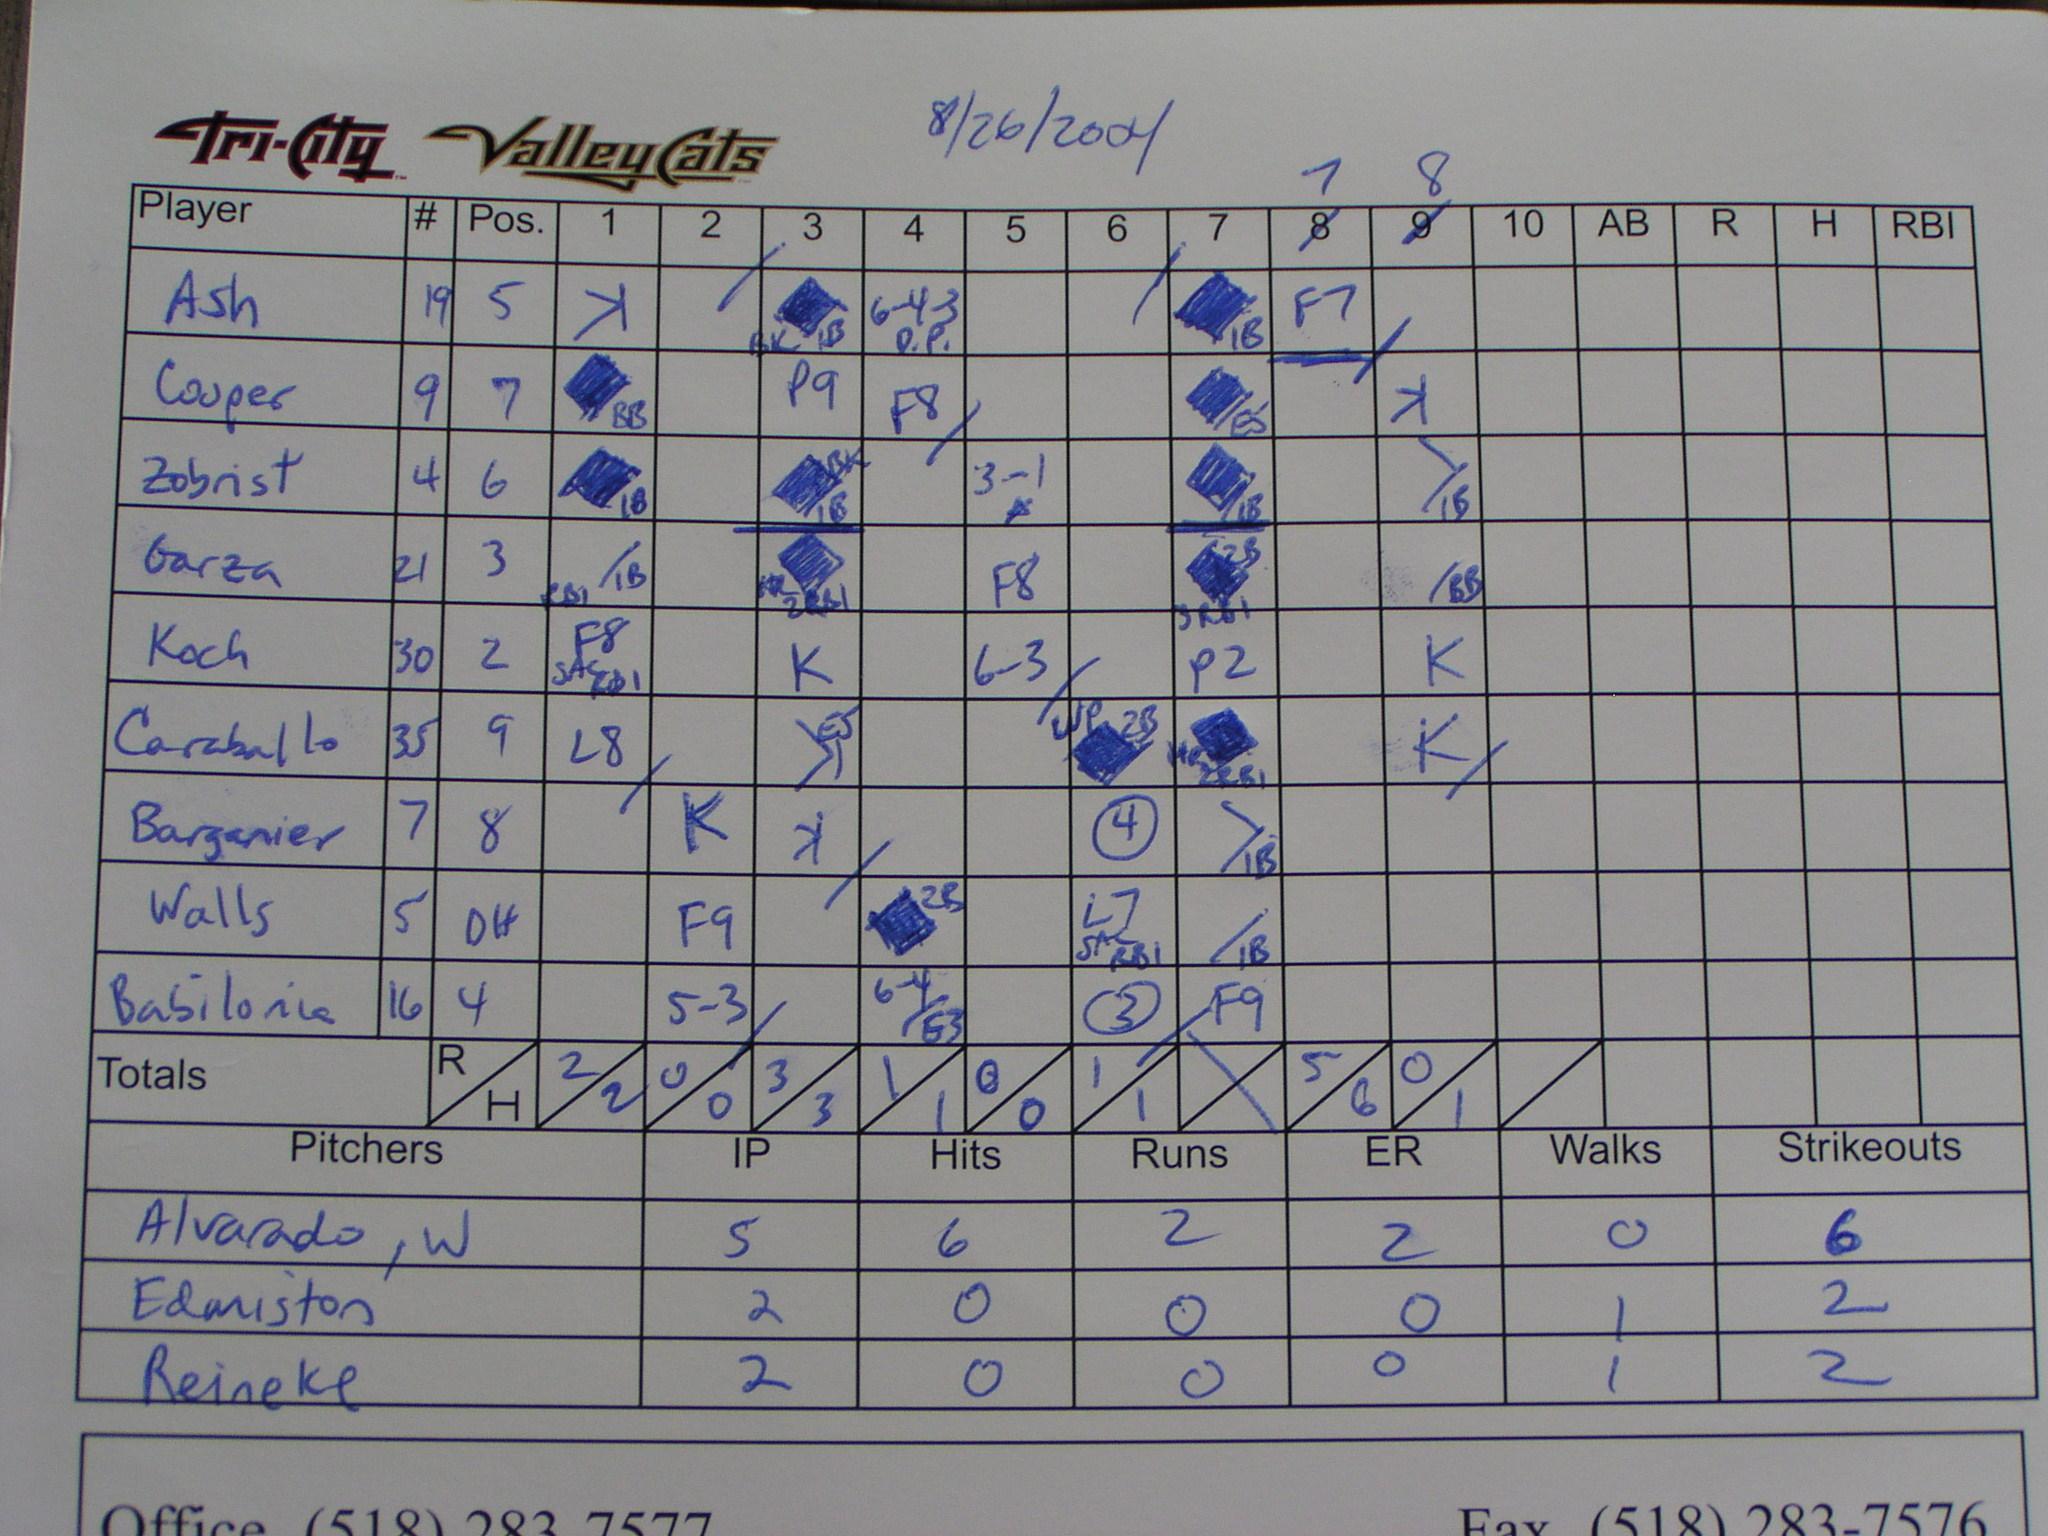 Tri-City ValleyCats 8/26/2004
7 8
Player # Pos. 1 2 3 4 5 6 7 8 9 10 AB R H RBI
Ash 19 5 K BK 1B 6-4-3 D.P. 1B F7
Cooper 9 7 BB P9 F8 E5 K
Zobrist 4 6 1B BK 1B 3-1 1B 1B
Garza 21 3 RBI 1B HR 2RBI F8 2B 3RBI BB
Koch 30 2 F8 SAC RBI K 6-3 P2 K
Caraballo 35 9 L8 E5 WP 2B HR 2RBI K
Barganier 7 8 K K 4 1B
Walls 5 DH F9 2B L7 SAC RBI 1B
Babilonia 16 4 5-3 6-4 E3 3 F9
Totals R H 2 2 0 0 3 3 1 1 0 0 1 1 5 6 0 1
Pitchers IP Hits Runs ER Walks Strikeouts
Alvarado, W 5 6 2 2 0 6
Edmiston 2 0 0 0 1 2
Reineke 2 0 0 0 1 2
Office (518) 283-7577 Fax (518) 283-7576